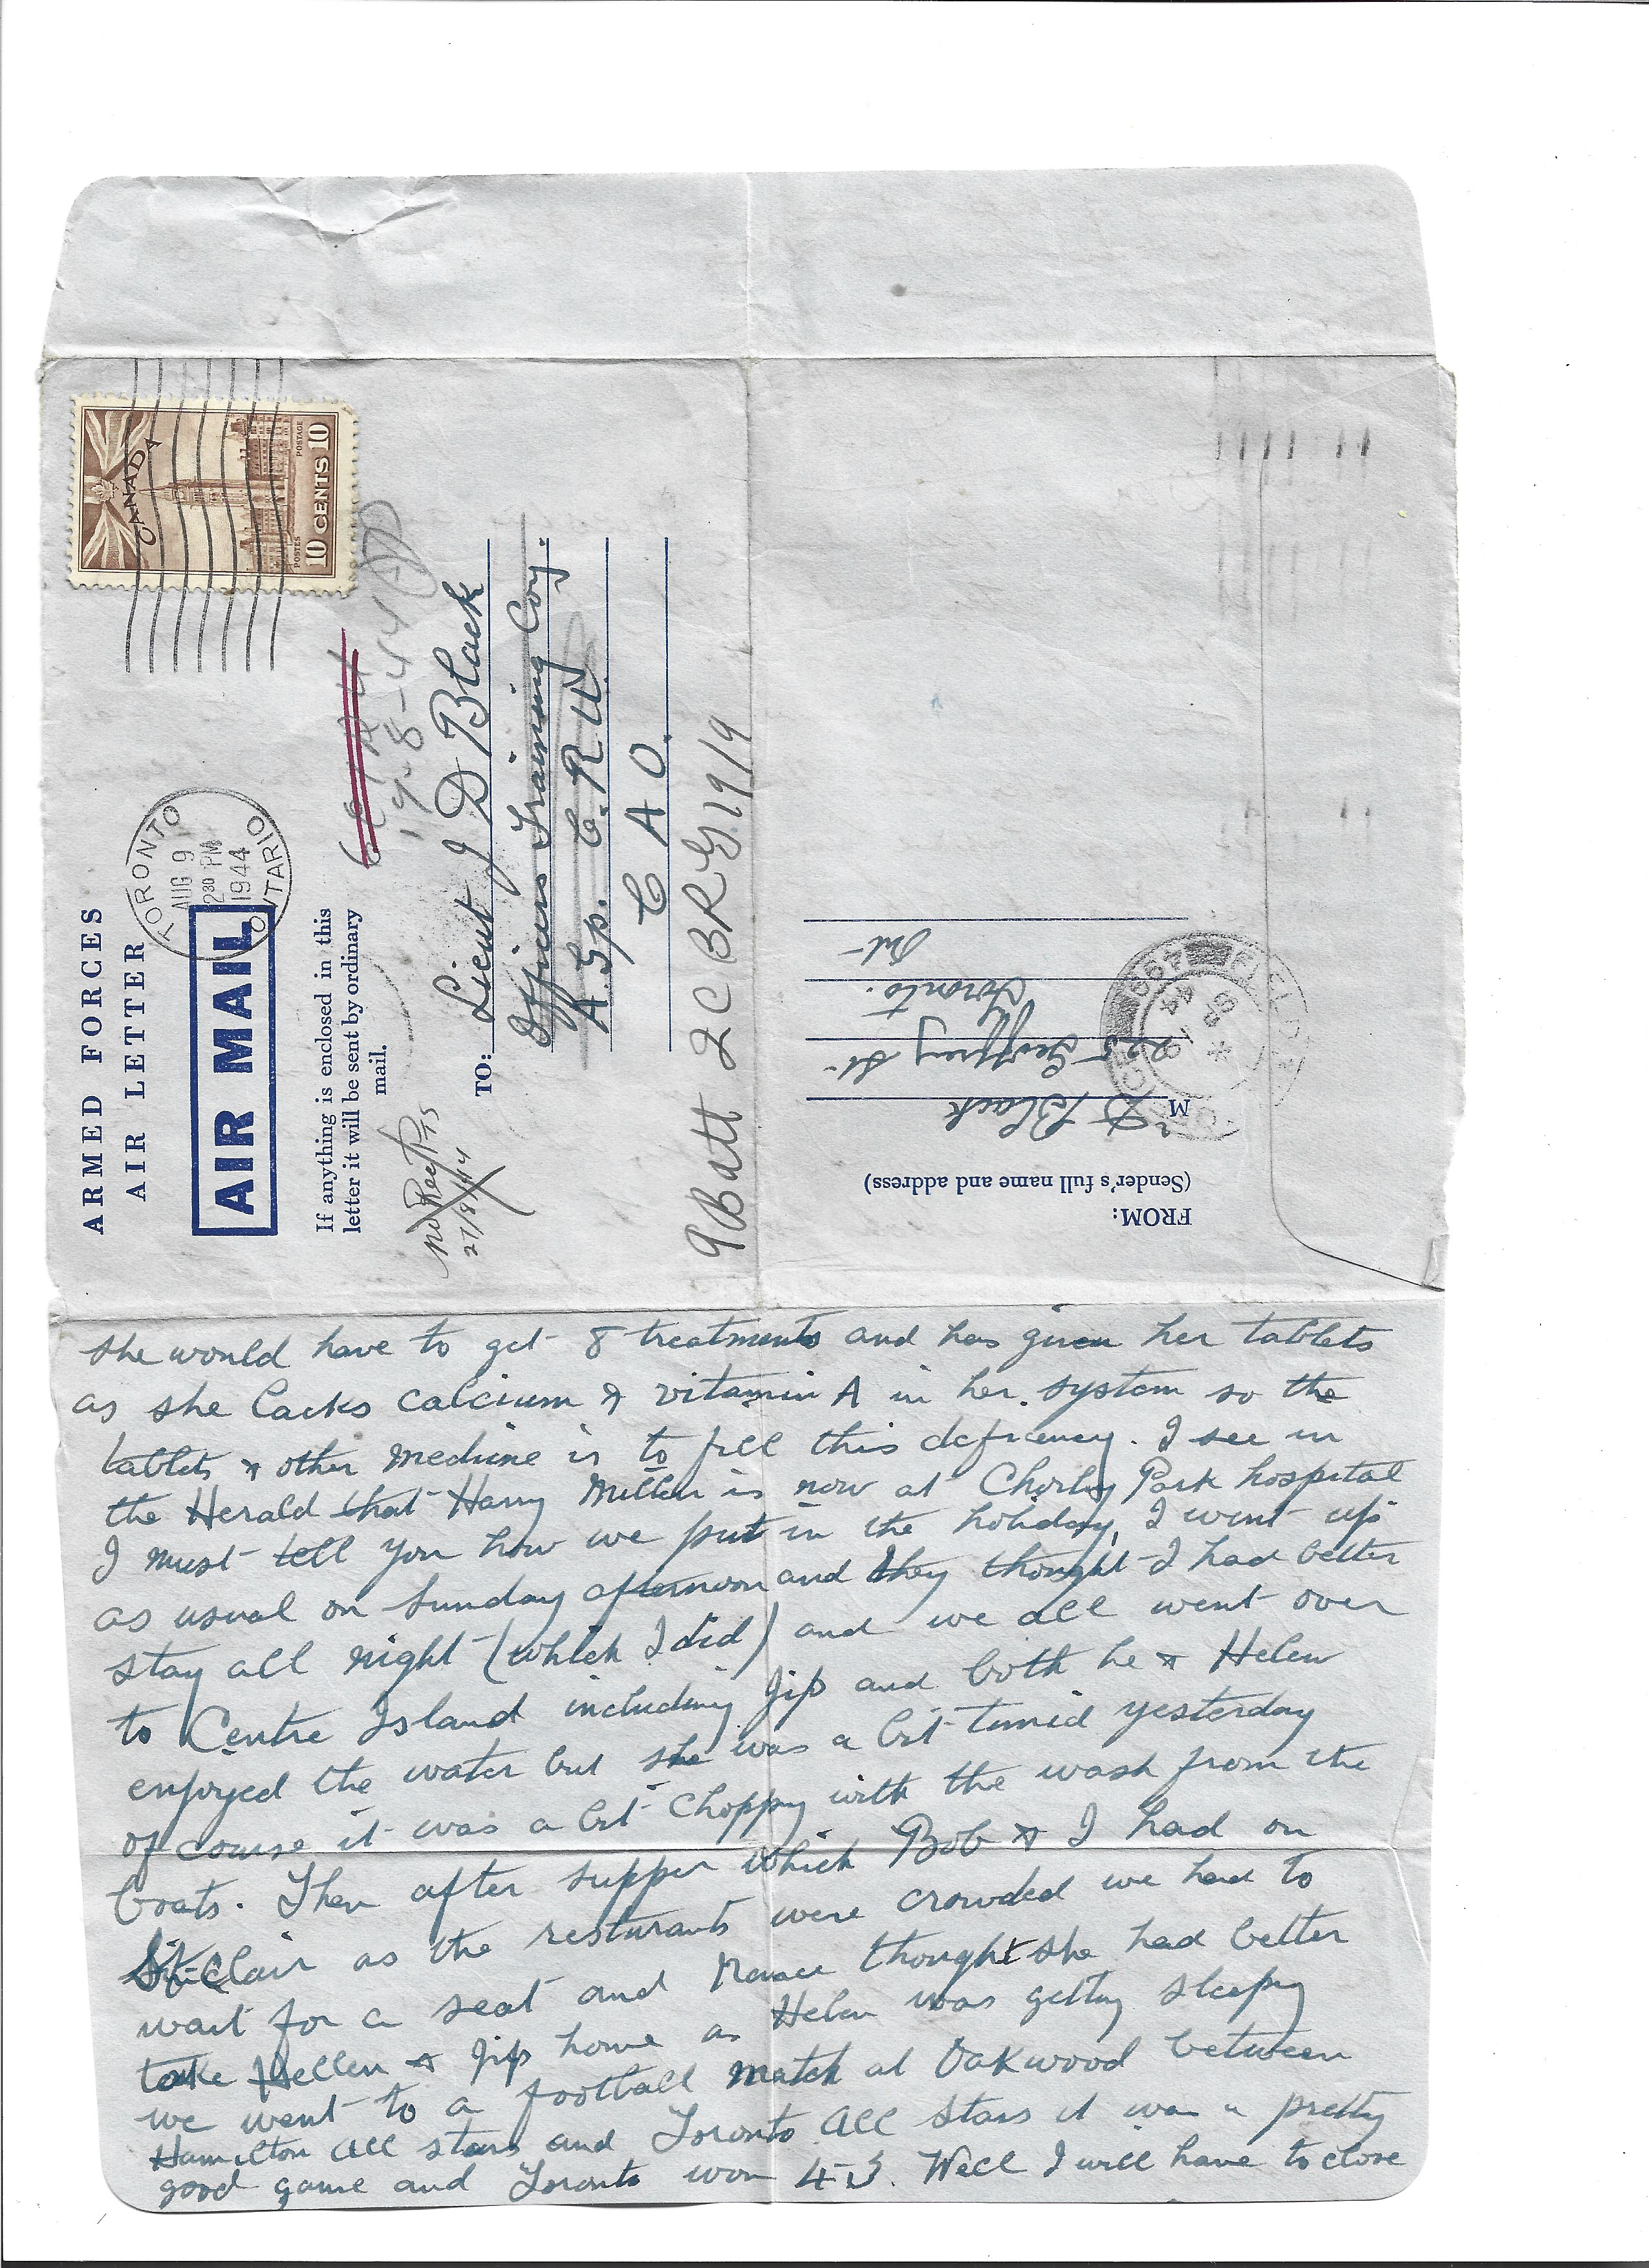 ARMED FORCES
AIR LETTER
AIR MAIL
TORONTO
AUG 9
2 30 PM
1944
ONTARIO
CANADA
POSTES POSTAGE
10 CENTS 10
If anything is enclosed in this
letter it will be sent by ordinary
mail.
19-8-44
27/8/44
TO: Lieut J D Black
Officers Training Coy.
A. Sp. C. R. U.
C A O.
9 Batt 2 C B R G 19/9
FROM:
(Sender's full name and address)
M D Black
225 Geoffrey St.
Toronto.
Ont
she would have to get 8 treatments and has given her tablets
as she lacks calcium & vitamin A in her system so the
tablets & other medicine is to fill this deficiency. I see in
the Herald that Harry Millen is now at Chorley Park hospital
I must tell you how we put in the holiday, I went up
as usual on Sunday afternoon and they thought I had better
stay all night (which I did) and we all went over
to Centre Island including Jip and both he & Helen
enjoyed the water but she was a bit timid yesterday
of course it was a bit choppy with the wash from the
boats. Then after supper which Bob & I had on
St. Clair as the resturants were crowded we had to
wait for a seat and thought she had better
take Hellen & Jip home as Helen was getting sleepy
we went to a football match at Oakwood between
Hamilton All stars and Toronto All Stars it was a pretty
good game and Toronto won 4-3. Well I will have to close